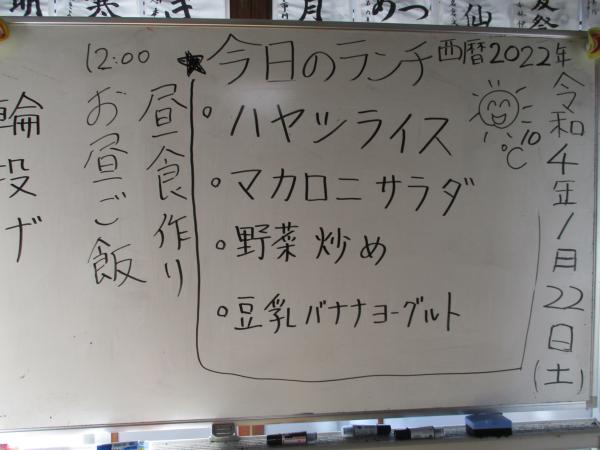 西暦2022年
令和4年1月22日(土)
10℃
★今日のランチ
・ハヤシライス
・マカロニサラダ
・野菜炒め
・豆乳バナナヨーグルト
昼食作り
12:00
お昼ご飯
輪投げ